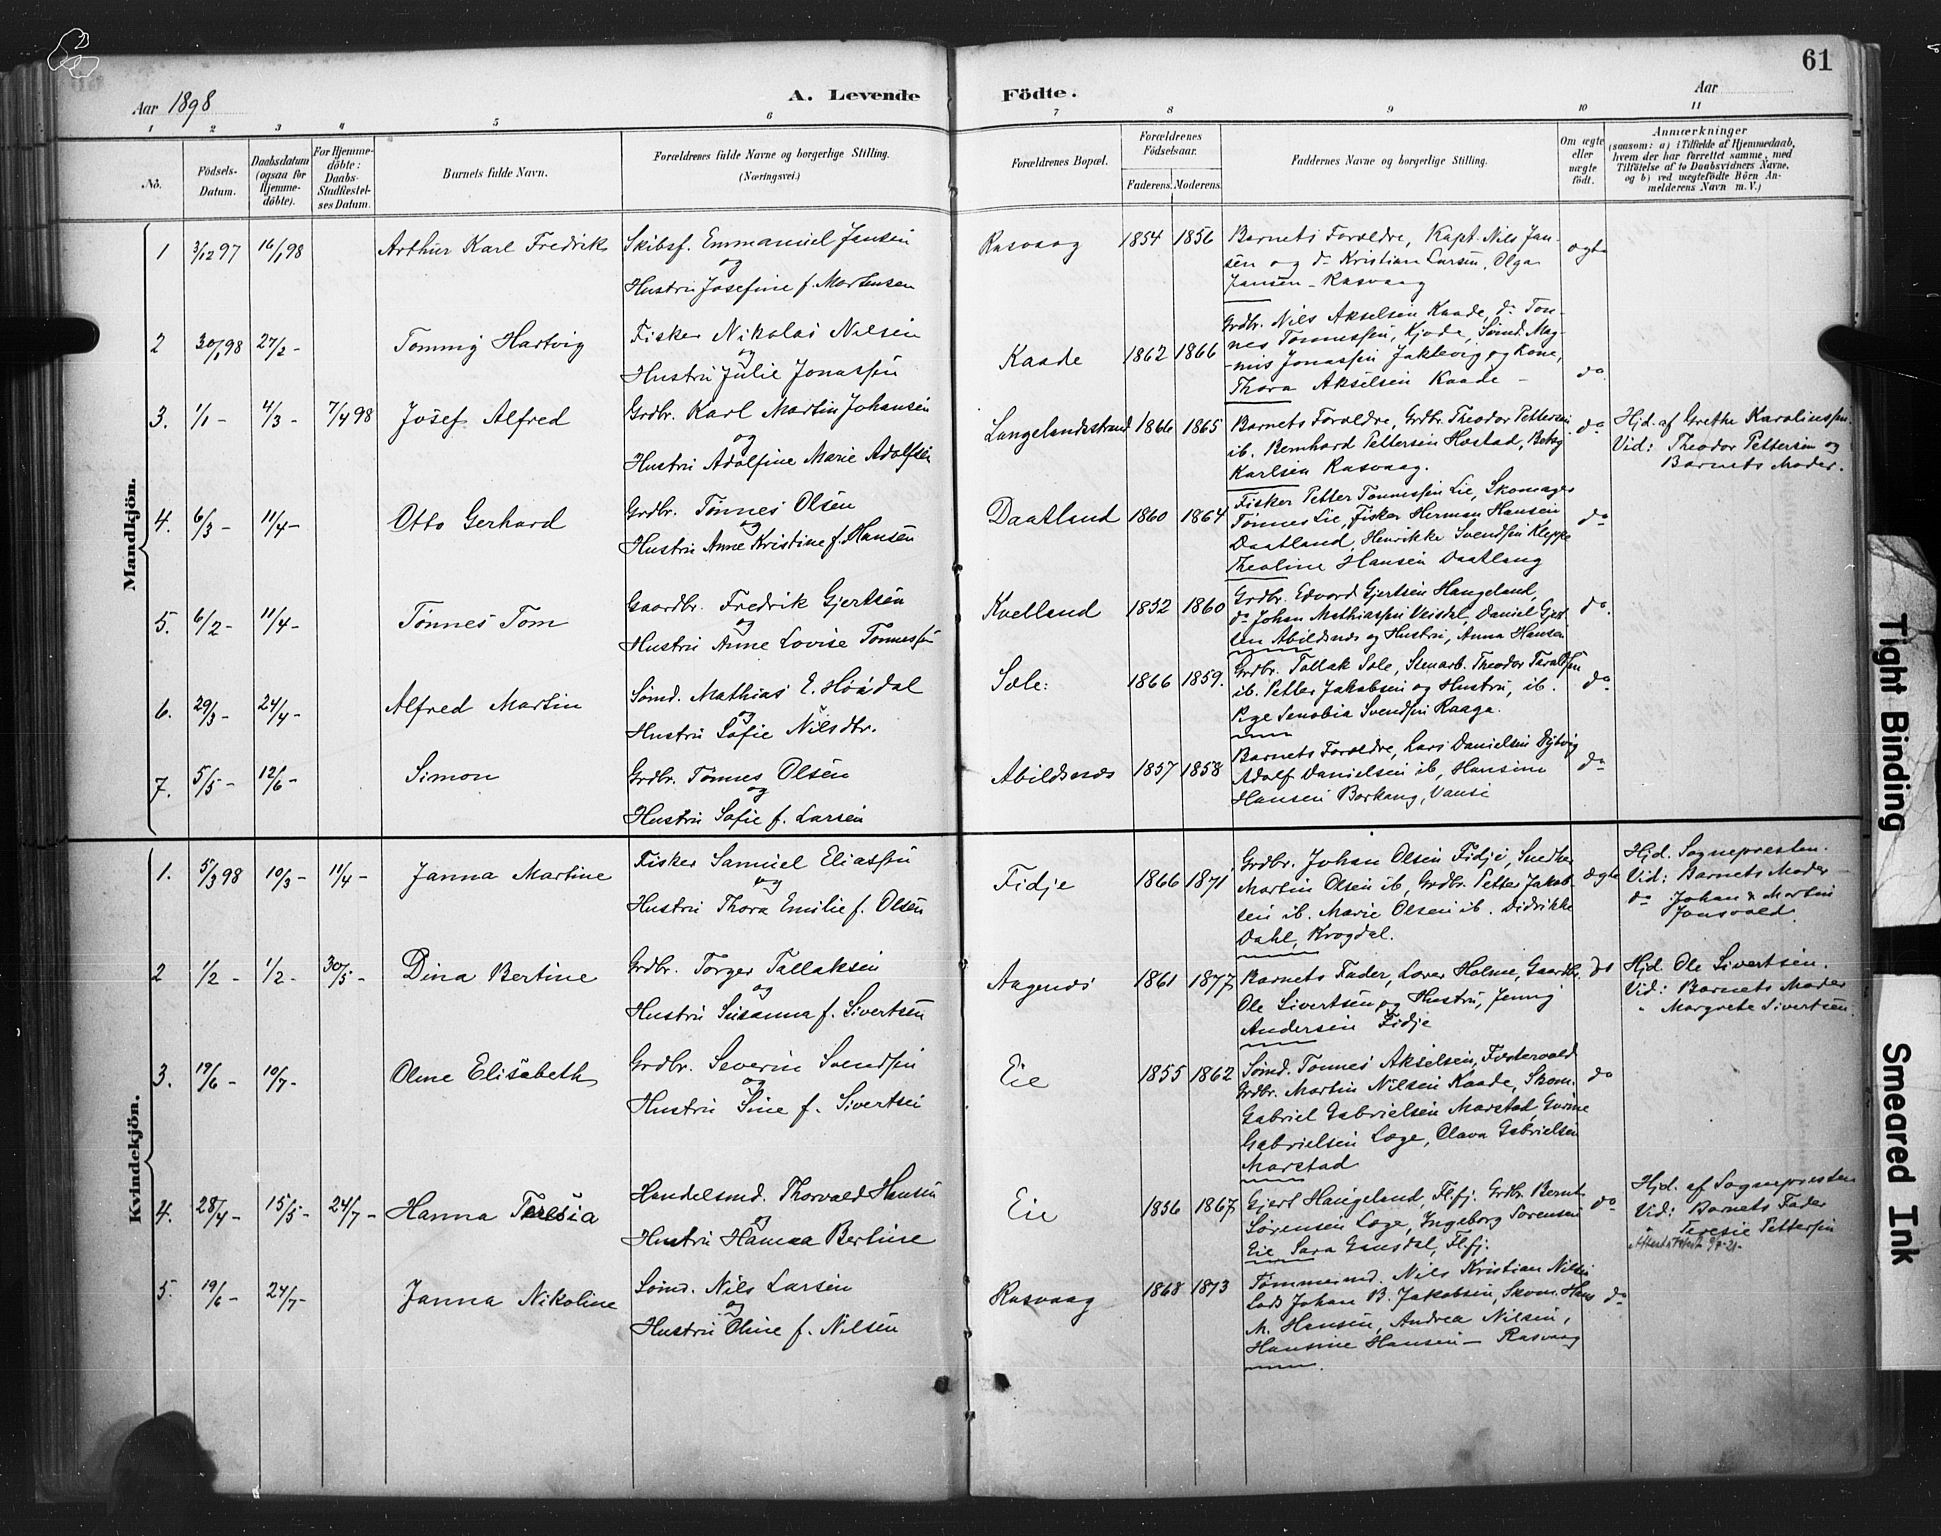 61
Aar 1898
A. Levende Födte.
Aar
1 2 3 4 5 6 7 8 9 10 11
No.
Födsels-
Datum.
Daabsdatum
(ogsaa for
Hjemme-
döbte).
For Hjemme-
döbte:
Daabs-
Stadfæstel-
ses Datum.
Barnets fulde Navn.
Forældrenes fulde Navne og borgerlige Stilling.
(Næringsvei.)
Forældrenes Bopæl.
Forældrenes
Födselsaar.
Faderens. Moderens.
Faddernes Navne og borgerlige Stilling.
Om ægte
eller
uægte
födt.
Anmærkninger
(saasom: a) i Tilfælde af Hjemmedaab,
hvem der har forrettet samme, med
Tilföielse af to Daabsvidners Navne,
og b) ved uægtefödte Börn An-
melderens Navn m. V.)
Mandkjön.
1 3/12 97 16/1 98 Arthur Karl Fredrik
Skibsf. Emmanuel Jensen
og
Hustru Josefine f. Mortensen
Rasvaag 1854 1856
Barnets Forældre, Kapt. Nils Jan-
sen og do Kristian Larsen, Olga
Jansen - Rasvaag
ægte
2 30/1 98 27/2 - Tommy Hartvig
Fisker Nikolai Nilsen
og
Hustru Julie Jonassen
Kaade 1862 1866
Grdbr. Nils Akselsen Kaade, do Tøn-
nes Tønnessen, Kjøde, Sømd. Mag-
nus Jonassen Jaklevig og Kone,
Thora Akselsen Kaade -
do
3. 1/1 - 4/3 - 7/4 98 Josef Alfred
Grdbr. Karl Martin Johansen
og
Hustru Adolfine Marie Adolfsen
Langelandsstrand 1866 1865
Barnets Forældre, Grdbr. Theodor Pettersen
ib. Bernhard Pettersen Høstad, Betzy
Karlsen Rasvaag.
do
Hjd. af Grethe Karolinssen.
Vid: Theodor Pettersen og
Barnets Moder.
4. 6/3 - 11/4 - Otto Gerhard
Grdbr. Tønnes Olsen
og
Hustru Anne Kristine f. Hansen
Daatland 1860 1864
Fisker Petter Tønnessen Lie, Skomager
Tønnes Lie, Fisker Herman Hansen
Daatland, Henrikke Svendsen Kleppe
Thealine Hansen Daatland
do
5. 6/2 - 11/4 - Tønnes Tom
Gaardbr. Fredrik Gjertsen
og
Hustru Anne Lovise Tønnessen
Kvelland 1852 1860
Grdbr. Edvard Gjertsen Haugeland,
do Johan Mathiassen Veisdal, Daniel Gjert-
sen Abildsnæs og Hustru, Anna Hansen
do.
6. 29/3 - 24/4 - Alfred Martin
Sømd. Mathias E. Høisdal
og
Hustru Sofie Nilsdbr.
Sæle: 1866 1859.
Grdbr. Tallak Sæle, Stenarb. Theodor Taraldsen
ib. Petter Jakobsen og Hustru, ib.
Pige Senobia Svendsen Raaga.
do
7. 5/5 - 12/6 - Simon
Grdbr. Tønnes Olsen
og
Hustru Sofie f. Larsen
Abildsnæs 1857 1858
Barnets Forældre, Lars Danielsen Dybvig
Adolf Danielsen ib, Hansine
Hansen Borhaug, Vanse
do
Kvindekjön.
1. 5/3 98 10/3 - 11/4 - Janna Martine
Fisker Samuel Eliassen
og
Hustru Thora Emilie f. Olsen
Fidje 1866 1871
Grdbr. Johan Olsen Fidje, Snedker
Martin Olsen ib, Grdbr. Petter Jakob-
sen ib. Marie Olsen ib. Didrikke
Dahl, Krogdal.
ægte
Hjd. Sognepresten.
Vid: Barnets Moder -
do Johan & Martin
Jonsvold.
2 1/2 - 1/2 - 30/5 - Dina Bertine
Grdbr. Torger Tallaksen
og
Hustru Susanna f. Sivertsen
Aagenæs 1861 1877
Barnets Fader, Lærer Holme, Gaardbr.
Ole Sivertsen og Hustru, Jenny
Andersen Fidje
do
Hjd. Ole Sivertsen.
Vid: Barnets Moder
" Margrete Sivertsen.
3. 19/6 - 10/7 - Olene Elisabeth
Grdbr. Severin Svendsen
og
Hustru Sine f. Sivertsen
Eie 1855 1862
Sømd. Tønnes Akselsen, Festervold
Grdbr. Martin Nilsen Kaade, Skom.
Gabriel Gabrielsen Marstad, Gurine
Gabrielsen Løge, Olava Gabrielsen
Marstad
do
4. 28/4 - 15/5 - 24/7 - Hanna Teresia
Handelsmd. Thorvald Hansen
og
Hustru Hanna Bertine
Eie 1856 1867
Gjert Haugeland, Flfj. Grdbr. Bernt
Sørensen Løge, Ingeborg Sørensen
Eie, Sara Gausdal, Flfj.
do
Hjd. af Sognepresten
Vid: Barnets Fader
" Teresie Pettersen
5. 19/6 - 24/7 - Janna Nikoline
Sømd. Nils Larsen
og
Hustru Oline f. Nilsen
Rasvaag 1868 1873
Tømmermd. Nils Kristian Nilsen
Lods Johan B. Jakobsen, Skom. Hans
M. Hansen, Andrea Nilsen,
Hansine Hansen - Rasvaag
do
Tight Binding
Smeared Ink